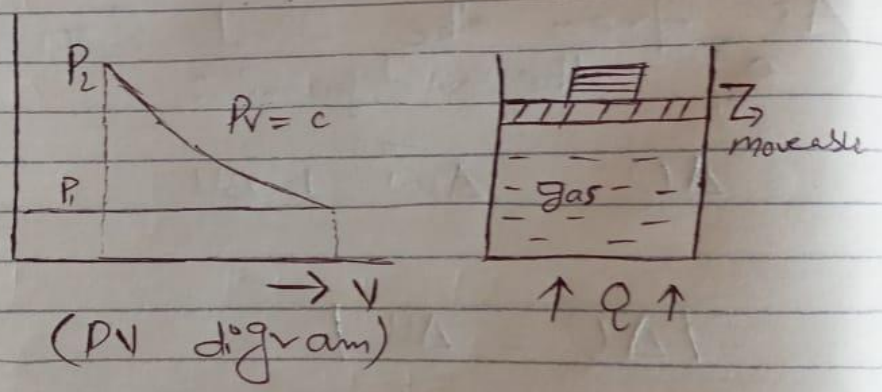 P₂
PV = c
P₁
→ V
(PV digram)
Z
moveable
gas
↑ Q ↑